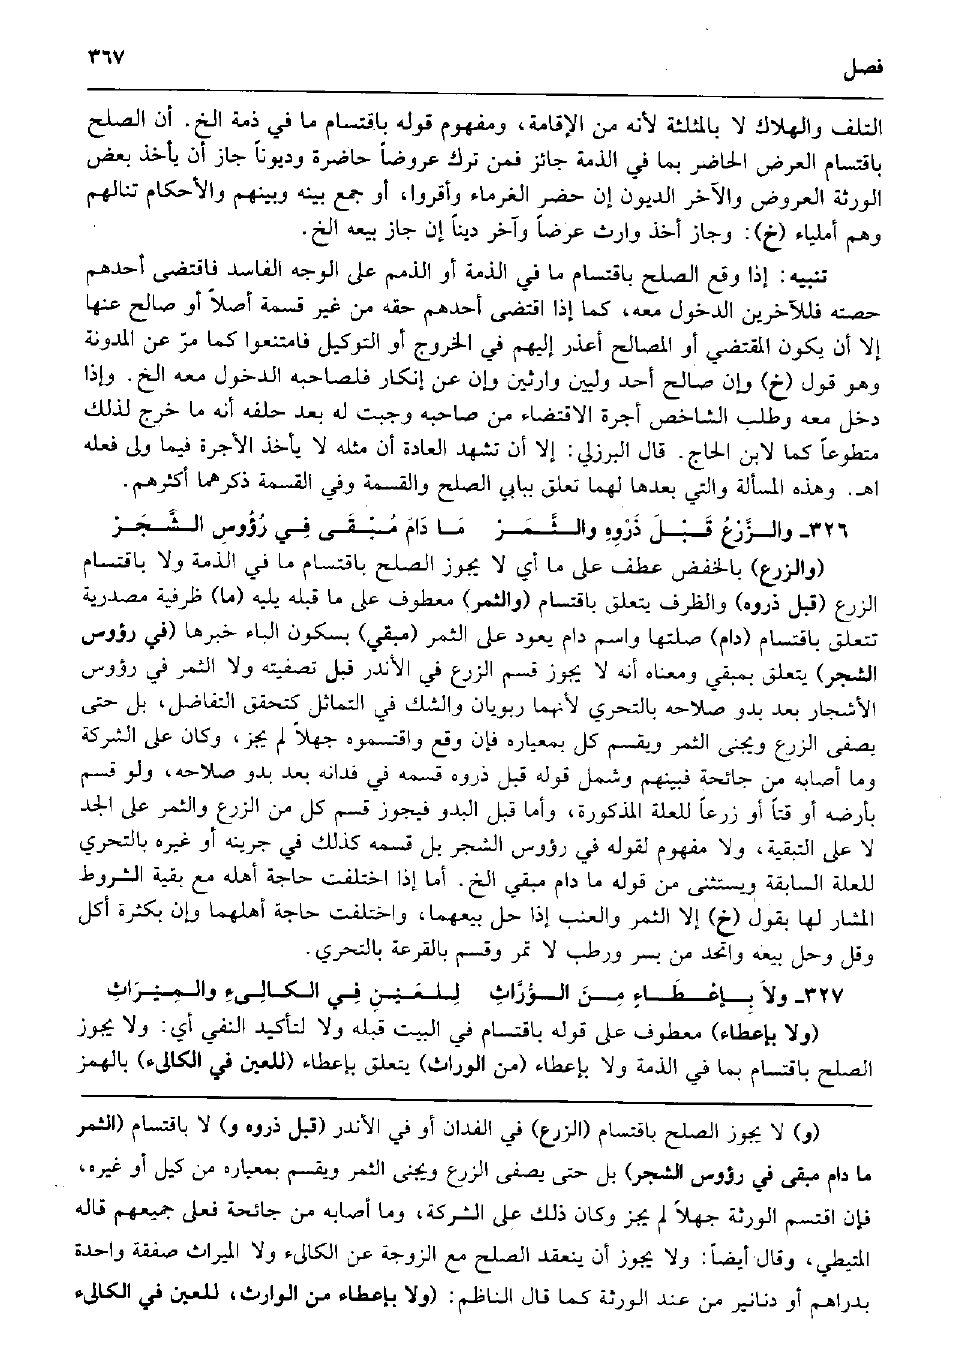 ٣٦٧
فصل
التلف والهلاك لا بالمثلثة لأنه من الإقامة، ومفهوم قوله باقتسام ما في ذمة الخ. أن الصلح
باقتسام العرض الحاضر بما في الذمة جائز فمن ترك عروضاً حاضرة وديوناً جاز أن يأخذ بعض
الورثة العروض والآخر الديون إن حضر الغرماء وأقروا، أو جمع بينه وبينهم والأحكام تنالهم
وهم أملياء (خ): وجاز أخذ وارث عرضاً وآخر ديناً إن جاز بيعه الخ.
تنبيه: إذا وقع الصلح باقتسام ما في الذمة أو الذمم على الوجه الفاسد فاقتضى أحدهم
حصته فللآخرين الدخول معه، كما إذا اقتضى أحدهم حقه من غير قسمة أصلاً أو صالح عنها
إلا أن يكون المقتضي أو المصالح أعذر إليهم في الخروج أو التوكيل فامتنعوا كما مرّ عن المدونة
وهو قول (خ) وإن صالح أحد وليين وارثين وإن عن إنكار فلصاحبه الدخول معه الخ. وإذا
دخل معه وطلب الشاخص أجرة الاقتضاء من صاحبه وجبت له بعد حلفه أنه ما خرج لذلك
متطوعاً كما لابن الحاج. قال البرزلي: إلا أن تشهد العادة أن مثله لا يأخذ الأجرة فيما ولى فعله
اهـ. وهذه المسألة والتي بعدها لهما تعلق ببابي الصلح والقسمة وفي القسمة ذكرهما أكثرهم.
٣٢٦ـ والـزَّرْعُ قَبْـلَ ذَرْوِهِ والـثَّـمَـرْ مَـا دَامَ مُـبْـقَـى فِـي رُؤُوسِ الـشَّـجَـرْ
(والزرع) بالخفض عطف على ما أي لا يجوز الصلح باقتسام ما في الذمة ولا باقتسام
الزرع (قبل ذروه) والظرف يتعلق باقتسام (والثمر) معطوف على ما قبله يليه (ما) ظرفية مصدرية
تتعلق باقتسام (دام) صلتها واسم دام يعود على الثمر (مبقي) بسكون الباء خبرها (في رؤوس
الشجر) يتعلق بمبقي ومعناه أنه لا يجوز قسم الزرع في الأندر قبل تصفيته ولا الثمر في رؤوس
الأشجار بعد بدو صلاحه بالتحري لأنهما ربويان والشك في التماثل كتحقق التفاضل، بل حتى
يصفى الزرع ويجنى الثمر ويقسم كل بمعياره فإن وقع واقتسموه جهلاً لم يجز، وكان على الشركة
وما أصابه من جائحة فبينهم وشمل قوله قبل ذروه قسمه في فدانه بعد بدو صلاحه، ولو قسم
بأرضه أو قتاً أو زرعاً للعلة المذكورة، وأما قبل البدو فيجوز قسم كل من الزرع والثمر على الجد
لا على التبقية، ولا مفهوم لقوله في رؤوس الشجر بل قسمه كذلك في جرينه أو غيره بالتحري
للعلة السابقة ويستثنى من قوله ما دام مبقي الخ. أما إذا اختلفت حاجة أهله مع بقية الشروط
المشار لها بقول (خ) إلا الثمر والعنب إذا حل بيعهما، واختلفت حاجة أهلهما وإن بكثرة أكل
وقل وحل بيعه واتحد من بسر ورطب لا تمر وقسم بالقرعة بالتحري.
٣٢٧ـ ولاَ بـإعْـطَـاءٍ مِـنَ الـوُرَّاثِ لِـلـعَـيْـنِ فِـي الـكَـالِـىءِ والـمِـيـرَاثِ
(ولا بإعطاء) معطوف على قوله باقتسام في البيت قبله ولا لتأكيد النفي أي: ولا يجوز
الصلح باقتسام بما في الذمة ولا بإعطاء (من الوراث) يتعلق بإعطاء (للعين في الكالىء) بالهمز
(و) لا يجوز الصلح باقتسام (الزرع) في الفدان أو في الأندر (قبل ذروه و) لا باقتسام (الثمر
ما دام مبقى في رؤوس الشجر) بل حتى يصفى الزرع ويجنى الثمر ويقسم بمعياره من كيل أو غيره،
فإن اقتسم الورثة جهلاً لم يجز وكان ذلك على الشركة، وما أصابه من جائحة فعلى جميعهم قاله
المتيطي، وقال أيضاً: ولا يجوز أن ينعقد الصلح مع الزوجة عن الكالىء ولا الميراث صفقة واحدة
بدراهم أو دنانير من عند الورثة كما قال الناظم: (ولا بإعطاء من الوارث، للعين في الكالىء